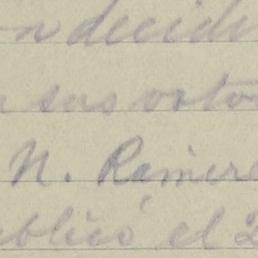 n decidi
sus voto
N. Ramire
ublicó el 2